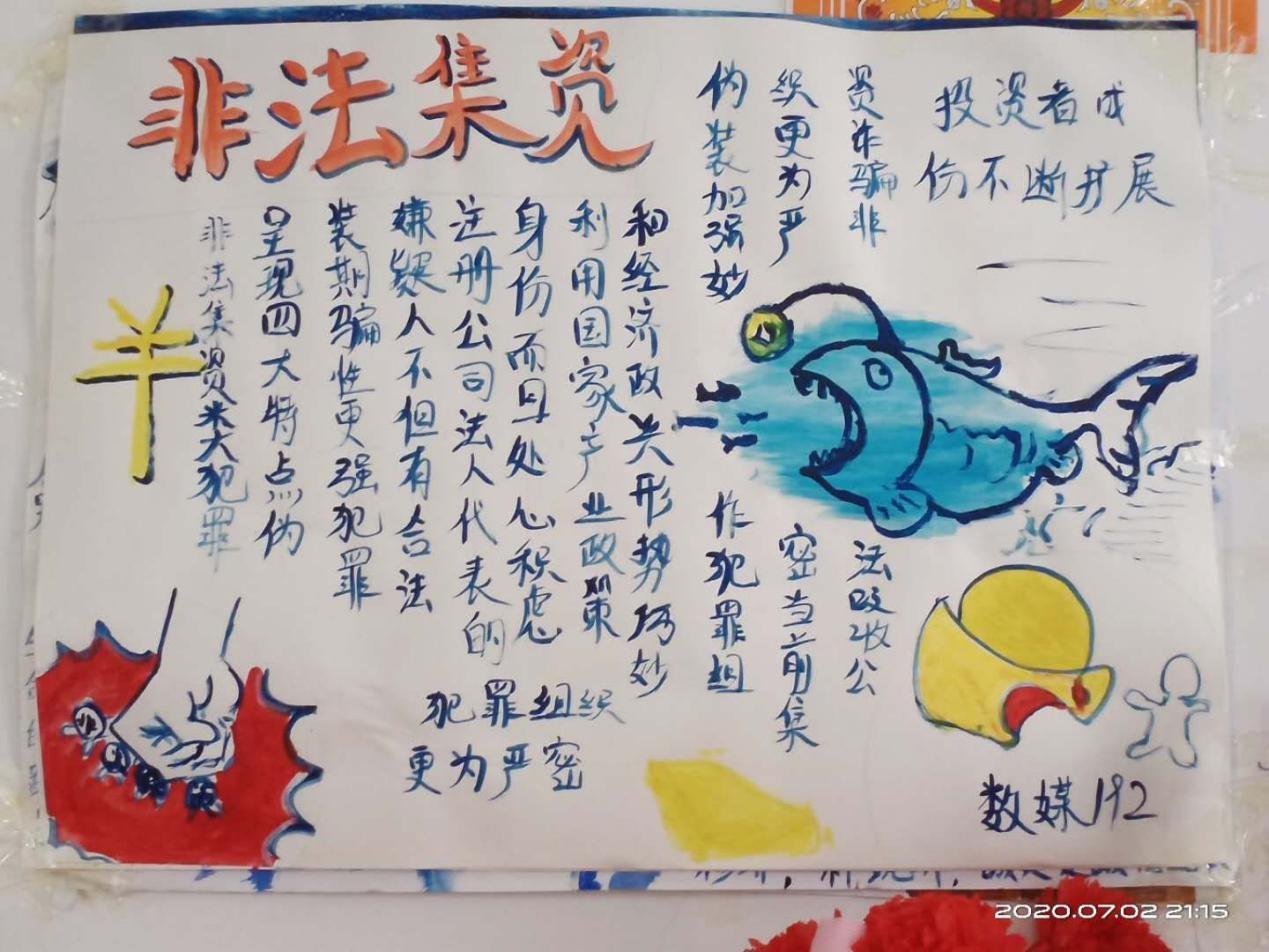 非法集资
非法集资类犯罪
呈现四大特点伪
装期骗性更强犯罪
嫌疑人不但有合法
注册公司法人代表的
身份而且处心积虑
利用国家产业政策
和经济政形势巧妙
伪装加强妙
作犯罪组
织更为严
密当前集
资诈骗非
法吸收公
投资者成
份不断扩展
犯罪组织
更为严密
数媒192
2020.07.02 21:15